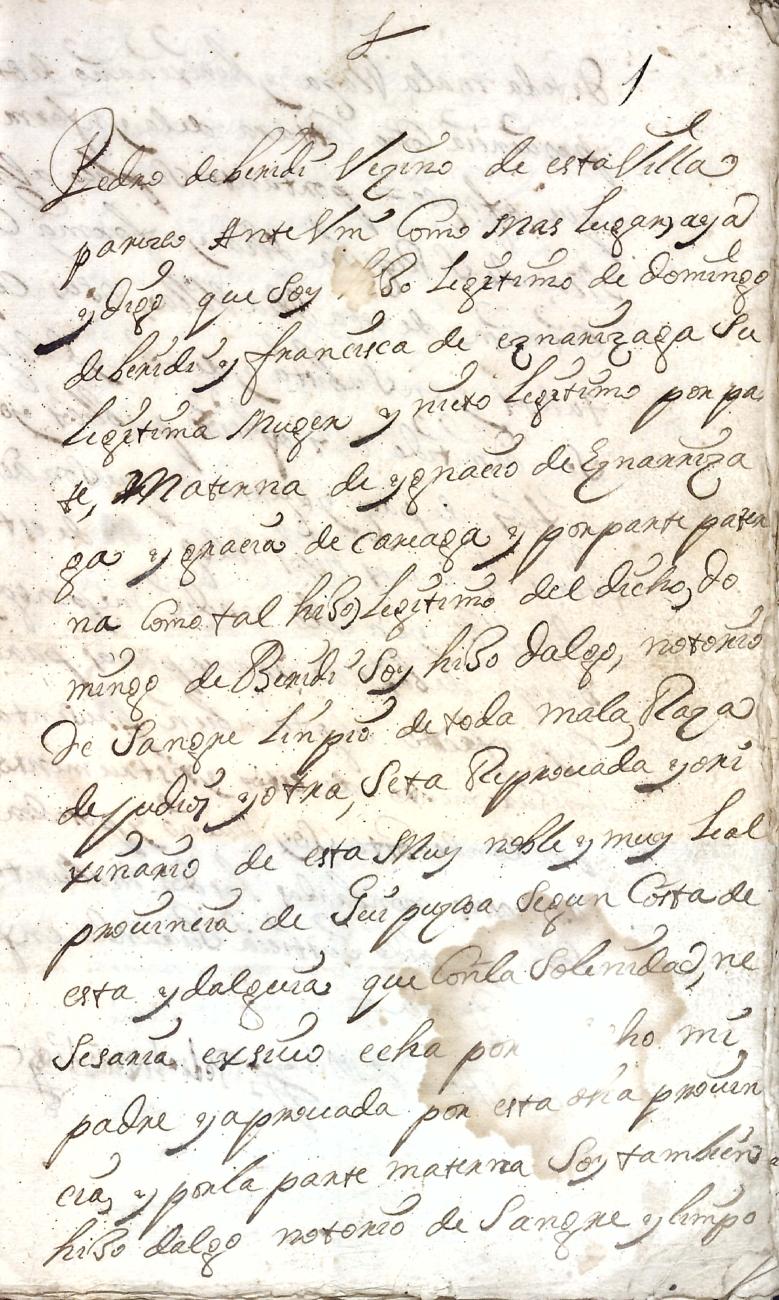 1
Pedro de beridi Vezino de esta Villa
parezco Ante Vm Como mas lugar aya
y digo que Soy hiBo legitimo de domingo
de beridi y francisca de eznarizaga Su
legitima Muger y nieto legitimo por pa
te, Materna de ygnacio de Eznarriza
ga y gracia de careaga y por parte pater
na Como tal hiBo legitimo del dicho do
mingo de Beridi Soy hiBo dalgo, notorio
de Sangre linpio de toda mala Raza
de judios y otra, Seta Reprouada y ori
xinario de esta Muy noble y muy leal
prouincia de Guipuzcoa Segun Costa de
esta ydalguia que Con la Solenidad, ne
sesaria exsiuo echa por ho mi
padre y aprouada por esta dha prouin
cia, y por la parte materna Soy tambien
hiBo dalgo notorio de Sangre y limpo